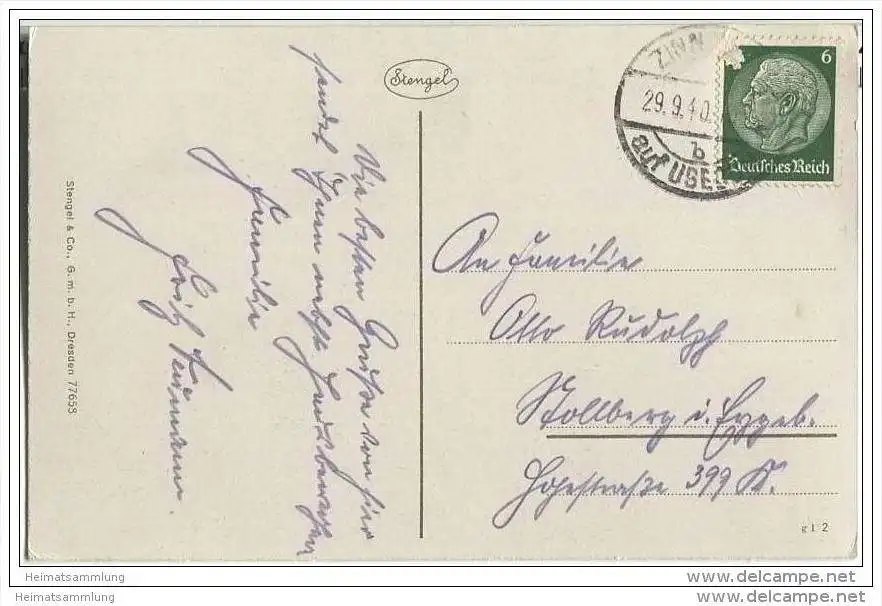 Die besten Grüße von hier
sendet Ihnen nebst
Familie
Fritz
Stengel & Co., G. m. b. H., Dresden 77658
Stengel
ZINN
29.9.40.
b
auf USED
6
Deutsches Reich
An Familie
Otto Rudolph
Stollberg i. Erzgeb.
Hohestraße 399 K.
g 1 2
Heimatsammlung
Heimatsammlung
www.delcampe.net
www.heimatsammlung.de